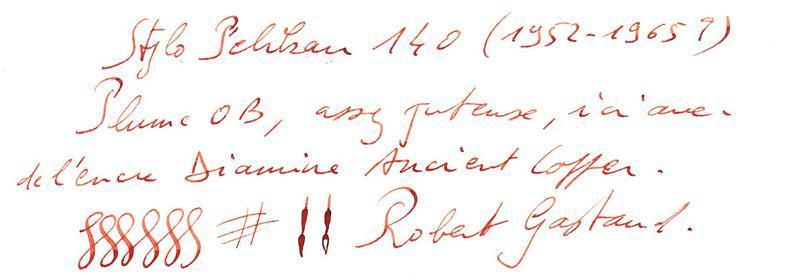 Stylo Pelikan 140 (1952-1965?)
Plume OB, assez juteuse, ici avec
de l'encre Diamine Ancient Copper.
Robert Gastaud.